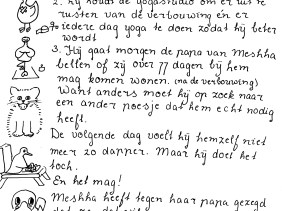 2. Hij houdt de yogastudio om er uit te
rusten van de verbouwing én er
iedere dag yoga te doen zodat hij beter
wordt
3. Hij gaat morgen de papa van Meshha
bellen of zij over 77 dagen bij hem
mag komen wonen. (na de verbouwing)
Want anders moet hij op zoek naar
een ander poesje dat hem echt nodig
heeft.
De volgende dag voelt hij hemzelf niet
meer zo dapper. Maar hij doet het
toch.
En het mag!
Meshha heeft tegen haar papa gezegd